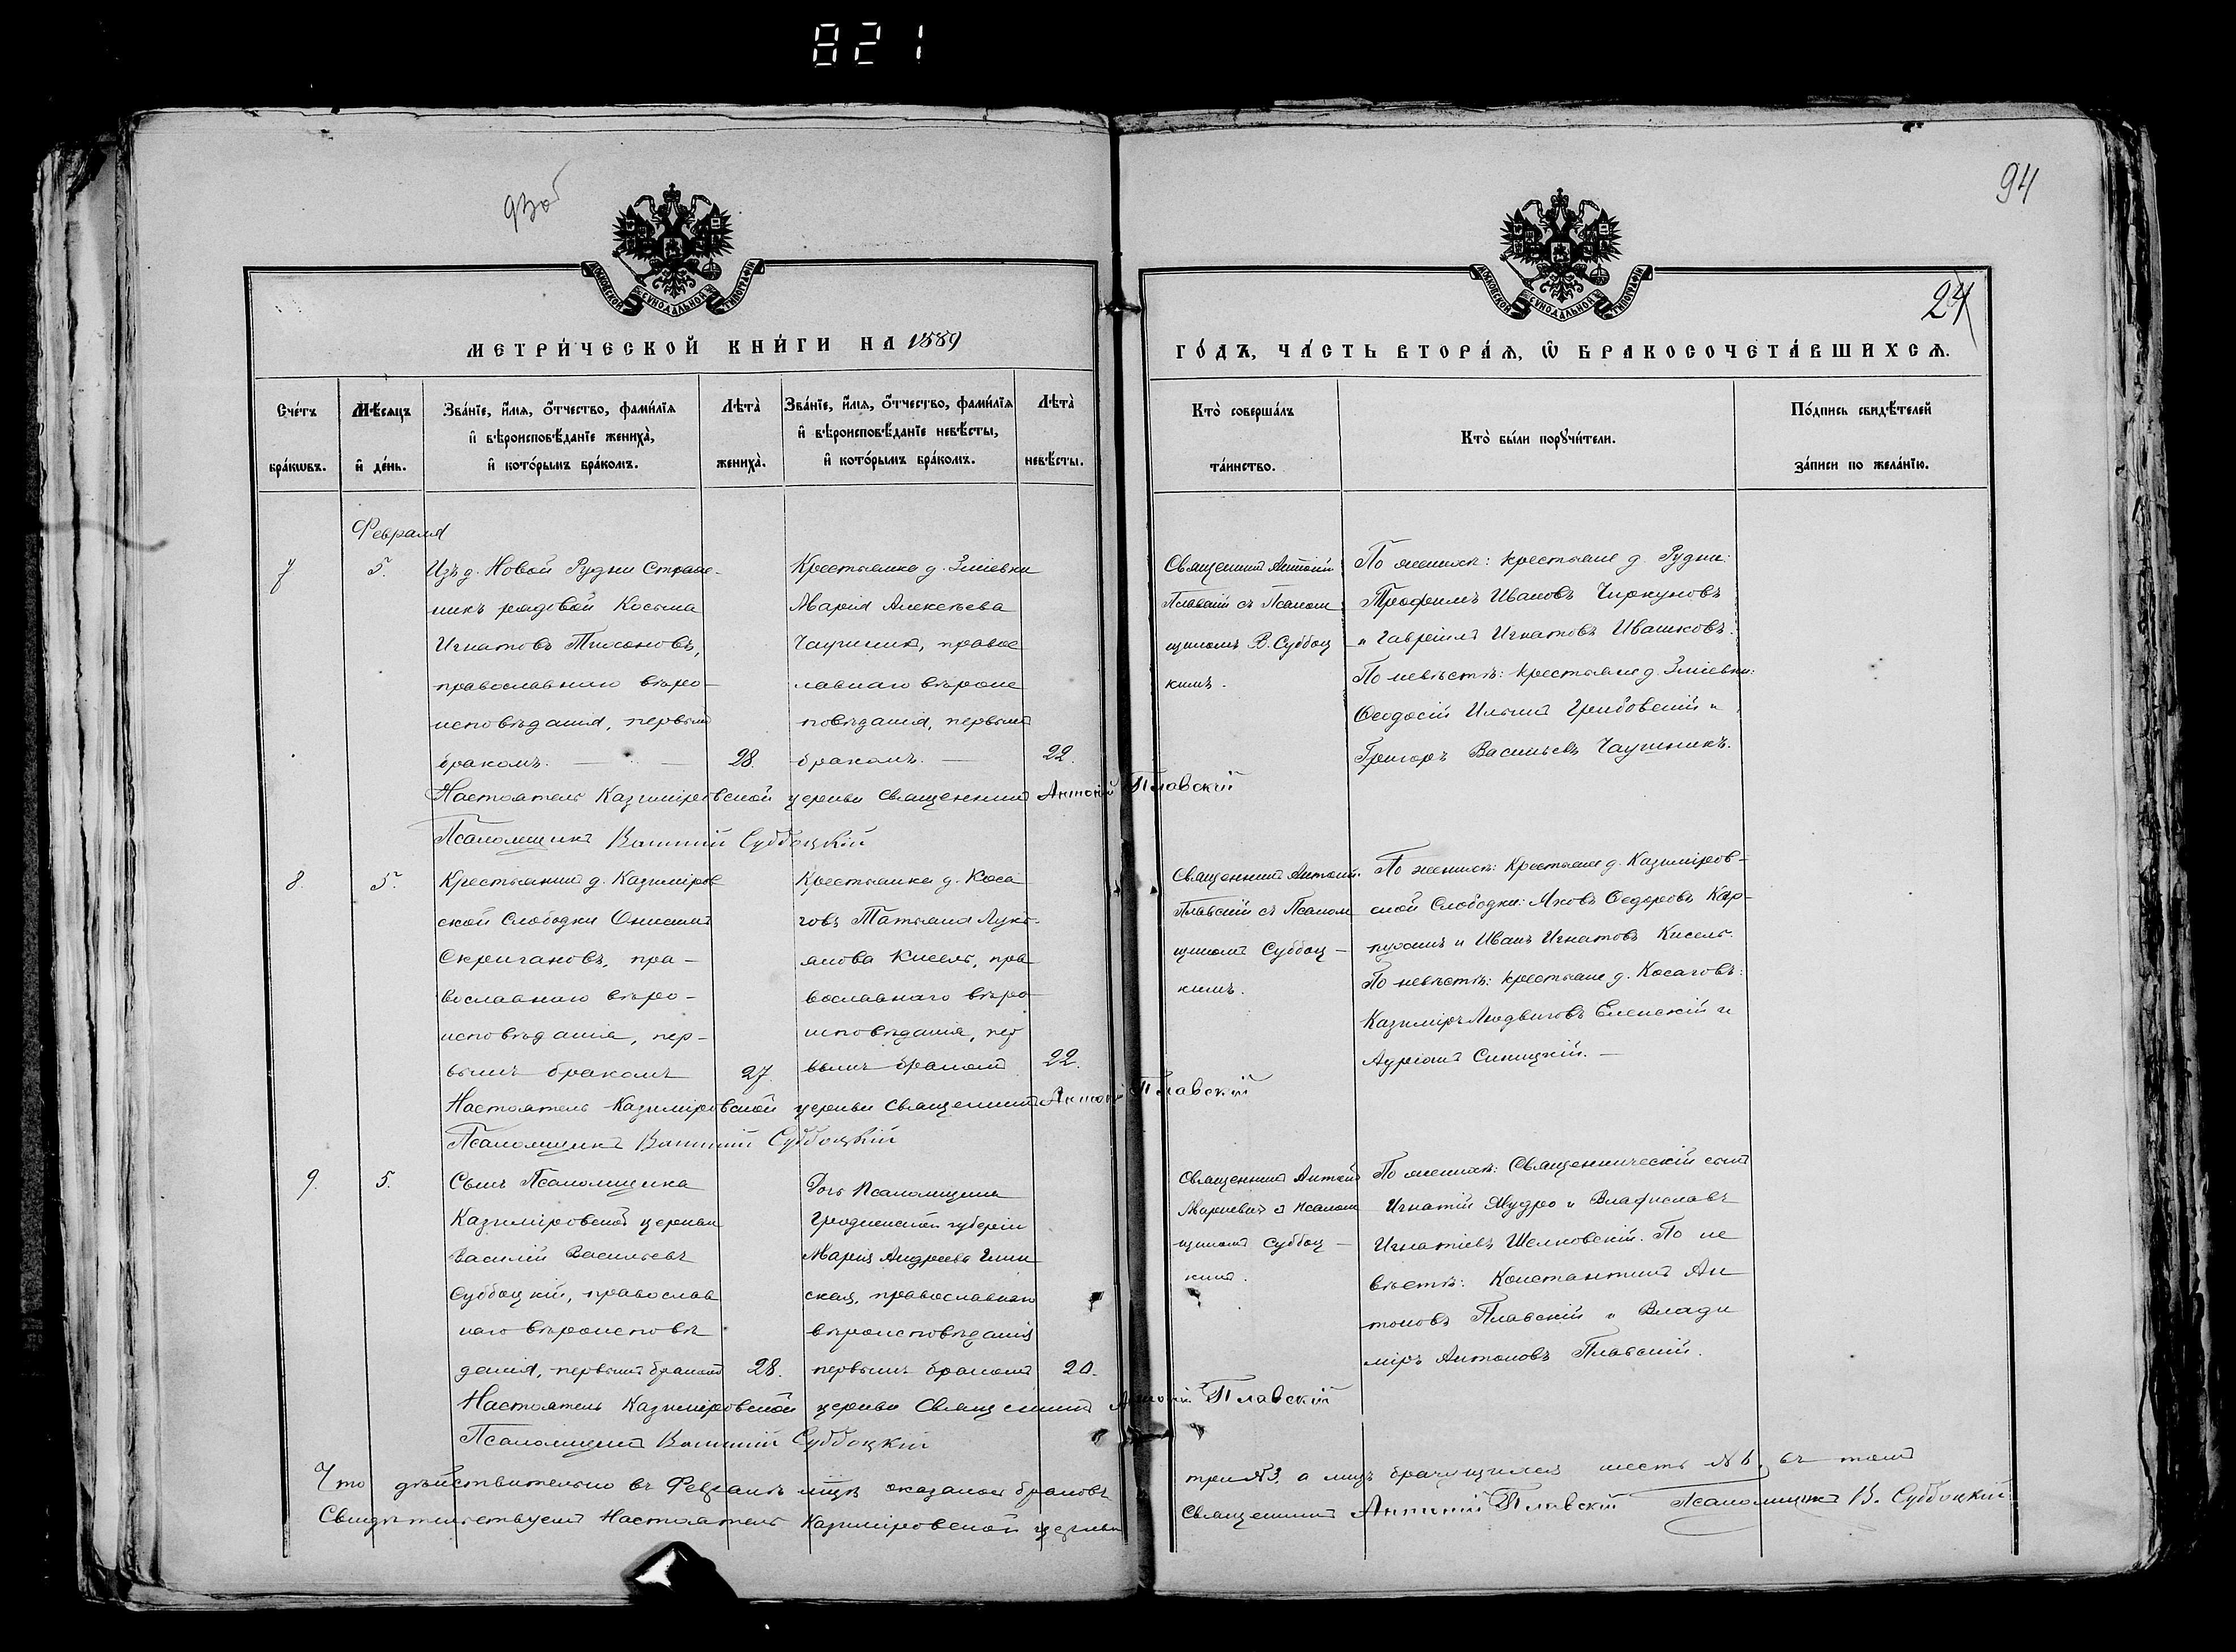 821
93об
94
МОСКОВСКОЙ СѴНОДАЛЬНОЙ ТИПОГРАФІИ
МОСКОВСКОЙ СѴНОДАЛЬНОЙ ТИПОГРАФІИ
24
МЕТРИ́ЧЕСКОЙ КНИ́ГИ НА 1889
ГО́ДЪ, ЧА́СТЬ ВТОРА́Ѧ, Ѽ БРАКОСОЧЕТА́ВШИХСѦ.
Сче́тъ бра́кѡвъ.
Мѣ́сѧцъ и҆ де́нь.
Зва́нїе, и҆́мѧ, ѻ҆́тчество, фами́лїѧ
и҆ вѣроисповѣ́данїе жениха̀,
и҆ кото́рымъ бра́комъ.
Лѣта̀ жениха̀.
Зва́нїе, и҆́мѧ, ѻ҆́тчество, фами́лїѧ
и҆ вѣроисповѣ́данїе невѣ́сты,
и҆ кото́рымъ бра́комъ.
Лѣта̀ невѣ́сты.
Кто̀ соверша́лъ
та́инство.
Кто̀ бы́ли порꙋчи́тели.
По́дпись свидѣ́телей
за́писи по жела́нїю.
Февраля
7
5.
Изъ д. Новой Рудни
рядовой Косьма
Игнатовъ Тихоновъ,
православнаго вѣро-
исповѣданія, первымъ
бракомъ.
28.
Крестьянка д. Зміевки
Марія Алексѣева
православ
лавнаго вѣроис
повѣданія, первымъ
бракомъ.
22.
Священникъ Антоній
Плавскій съ Псалом
щикомъ В. Суббоц
кимъ.
По женихѣ: крестьяне д. Рудни:
Трофимъ Ивановъ Чиркуновъ
и Гавріилъ Игнатовъ Ивашковъ.
По невѣстѣ: крестьяне д. Зміевки:
Ѳеодосій Ильинъ Грибовскій и
Григоръ Васильевъ
Настоятель Казиміровской церкви Священникъ Антоній Плавскій
Псаломщикъ Василій Суббоцкій
8.
5.
Крестьянинъ д. Казиміров
ской Слободки Онисимъ
Скригановъ, пра-
вославнаго вѣро-
исповѣданія, пер-
вымъ бракомъ
27.
Крестьянка д. Коса
говъ Татьяна Лукь
янова Кисель, пра
вославнаго вѣро
исповѣданія, пер
вымъ бракомъ
22.
Священникъ Антоній
Плавскій съ Псалом
щикомъ Суббоц-
кимъ.
По женихѣ: Крестьяне д. Казиміров-
ской Слободки: Яковъ Ѳедоровъ Кар-
и Иванъ Игнатовъ Кисель.
По невѣстѣ: крестьяне д. Косаговъ:
Казиміръ Людвиговъ Еленскій и
Синицкій.
Настоятель Казиміровской церкви Священникъ Антоній Плавскій
Псаломщикъ Василій Суббоцкій
9.
5.
Сынъ Псаломщика
Казиміровской церкви
Василій Васильевъ
Суббоцкій, православ
наго вѣроисповѣ
данія, первымъ бракомъ
28.
Дочь Псаломщика
Гродненской губерніи
Марія Андреева
ская, православнаго
вѣроисповѣданія
первымъ бракомъ
20.
Священникъ Антоній
Маркевичъ съ псалом
щикомъ Суббоц-
кимъ.
По женихѣ: Священническій сынъ
Игнатій Мудро и Владиславъ
Игнатіевъ Шелковскій. По не
вѣстѣ: Константинъ Ан
тоновъ Плавскій и Влади
міръ Антоновъ Плавскій.
Настоятель Казиміровской церкви Священникъ Антоній Плавскій
Псаломщикъ Василій Суббоцкій
Что дѣйствительно въ Февралѣ мцѣ оказалось браковъ три №3, а лицъ брачущихся шесть №6, въ томъ
Свидѣтельствуемъ Настоятель Казиміровской церкви Священникъ Антоній Плавскій Псаломщикъ В. Суббоцкій.